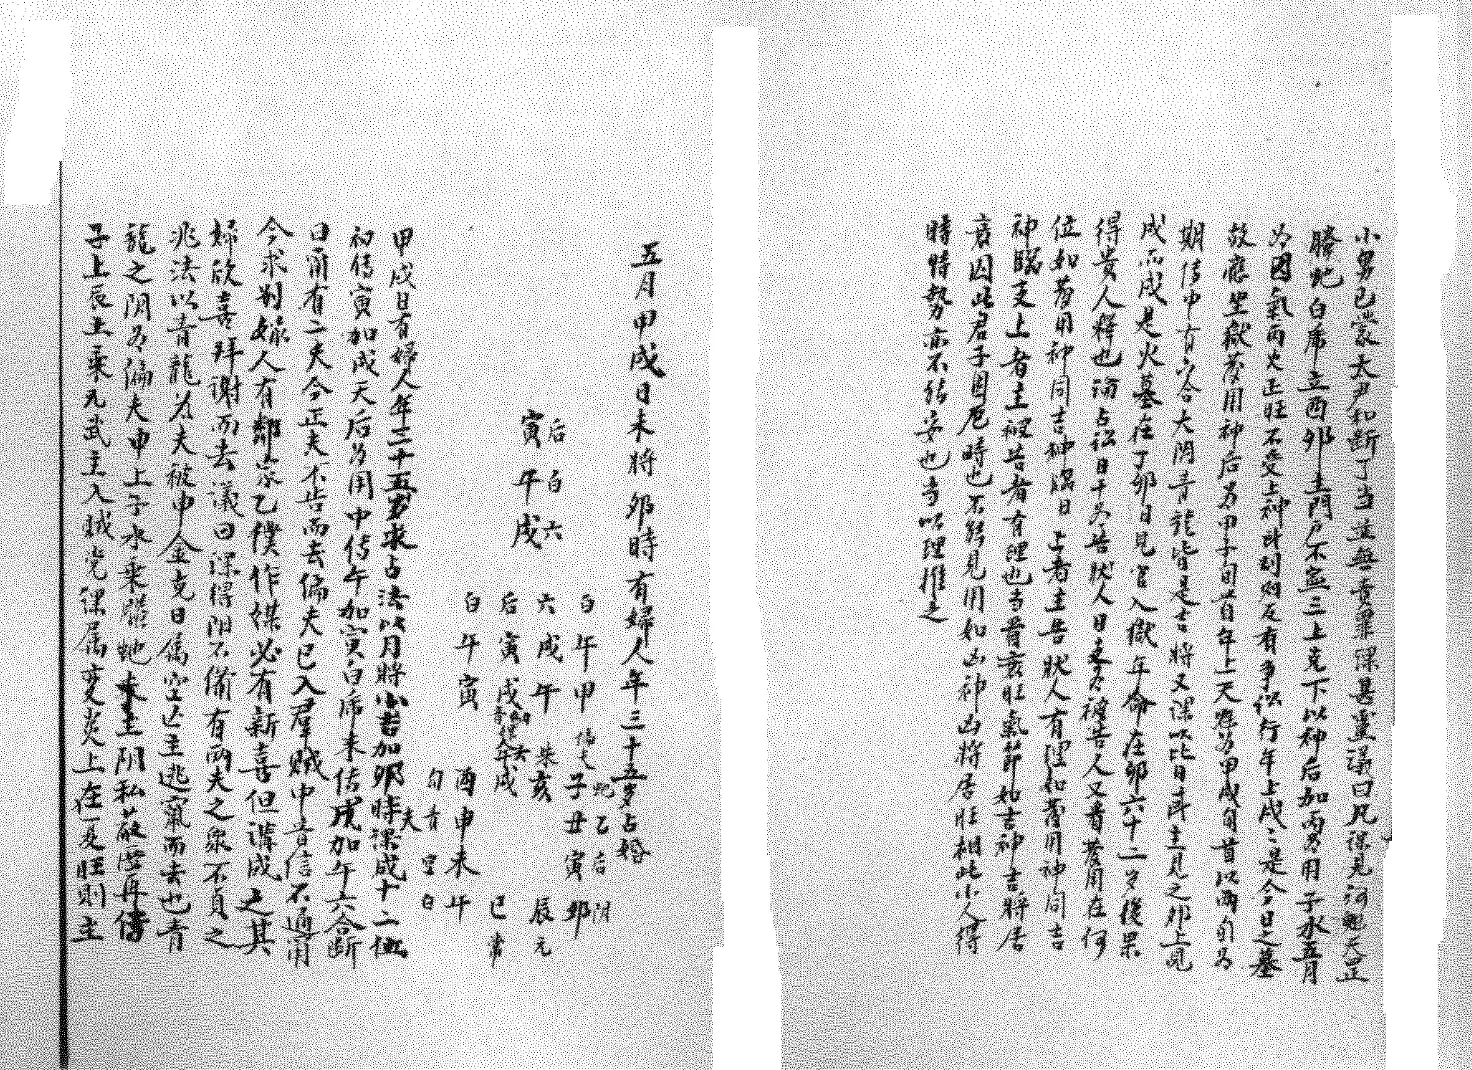 小男已蒙大尹和断丁当並無責罪課甚靈議曰凡課見河魁天罡
螣蛇白虎立酉卯主門戶不寧三上克下以神后加丙為用子水五月
為囚氣丙火正旺不受上神
故應坐獄發用神后為甲子旬首年上天罡為甲戌旬首以兩旬為
期傳中有六合大陰青龍皆是吉將又課以比日時主見之卯上見
戌而戌是火墓在丁卯日見官入獄年命在卯六十二岁後果
得貴人釋也論占訟日干為告狀人日支為被告人又看發用在何
位如發用神同吉神臨日上者主告狀人有理如發用神同吉
神臨支上者主被告者有理也当看衰旺氣節如吉神吉將居
衰囚此君子困厄時也不能見用如凶神凶將居旺相此小人得
時恃勢亦不能安也当以理推之
五月甲戌日未將卯時有婦人年三十五岁占婚
后 白 六
寅 午 戌
白 午 甲
六 戌 午
后 寅 戌
白 午 寅
蛇 子 丑 寅 卯
朱 亥 辰 元
戌 巳 常
酉 申 未 午
勾 青 空 白
甲戌日有婦人年三十五岁求占法以月將小吉加卯時課成十二位
初傳寅加戌天后為用中傳午加寅白虎末傳戌加午六合断
曰爾有二夫今正夫不告而去偏夫已入群贼中音信不通爾
今求别嫁人有鄰家乙僕作媒必有新喜但講成之其
婦欣喜拜謝而去議曰課得阴不備有兩夫之象不貞之
兆法以青龍為夫被申金克日傷空亡主逃竄而去也青
龍之阴為偏夫申上子水乘螣蛇
子上辰上乘元武主入贼党課属炎上在夏旺則主